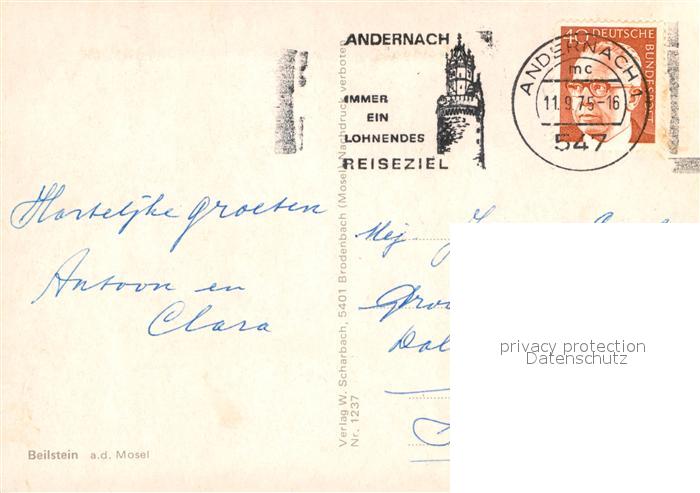 ANDERNACH
IMMER
EIN
LOHNENDES
REISEZIEL
ANDERNACH 1
mc
11.9.75-16
547
40 DEUTSCHE BUNDESPOST
Hartelijke groeten
Antoon en
Clara
Mej
privacy protection
Datenschutz
Verlag W. Scharbach, 5401 Brodenbach (Mosel) Nachdruck verboten
Nr. 1237
Beilstein a.d. Mosel